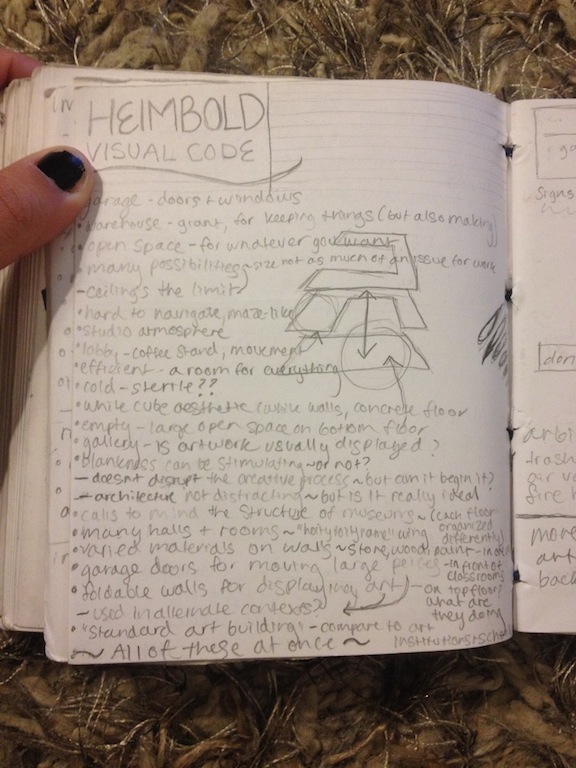 HEIMBOLD
VISUAL CODE
garage - doors + windows
• warehouse - giant, for keeping things (but also making)
• open space - for whatever you want
• many possibilities ~ size not as much of an issue for work
- ceiling's the limit
• hard to navigate, maze-like
• studio atmosphere
• lobby - coffee stand, movement
• efficient - a room for everything
• cold - sterile??
• white cube aesthetic (white walls, concrete floor
• empty - large open space on bottom floor
• gallery - is artwork usually displayed?
• blankness can be stimulating ~ or not?
- doesn't disrupt the creative process ~ but can it begin it?
- architecture not distracting ~ but is it really ideal
• calls to mind the structure of museums ~ (each floor organized differently)
• many halls + rooms ~ wing
• varied materials on walls ~ stone, wood, paint
• garage doors for moving large pieces - in front of classrooms
• foldable walls for display art - on top floor? what are they doing
- used in alternate contexts?
• "standard art building" - compare to art institutions +
~ All of these at once ~
Signs
more
art
back